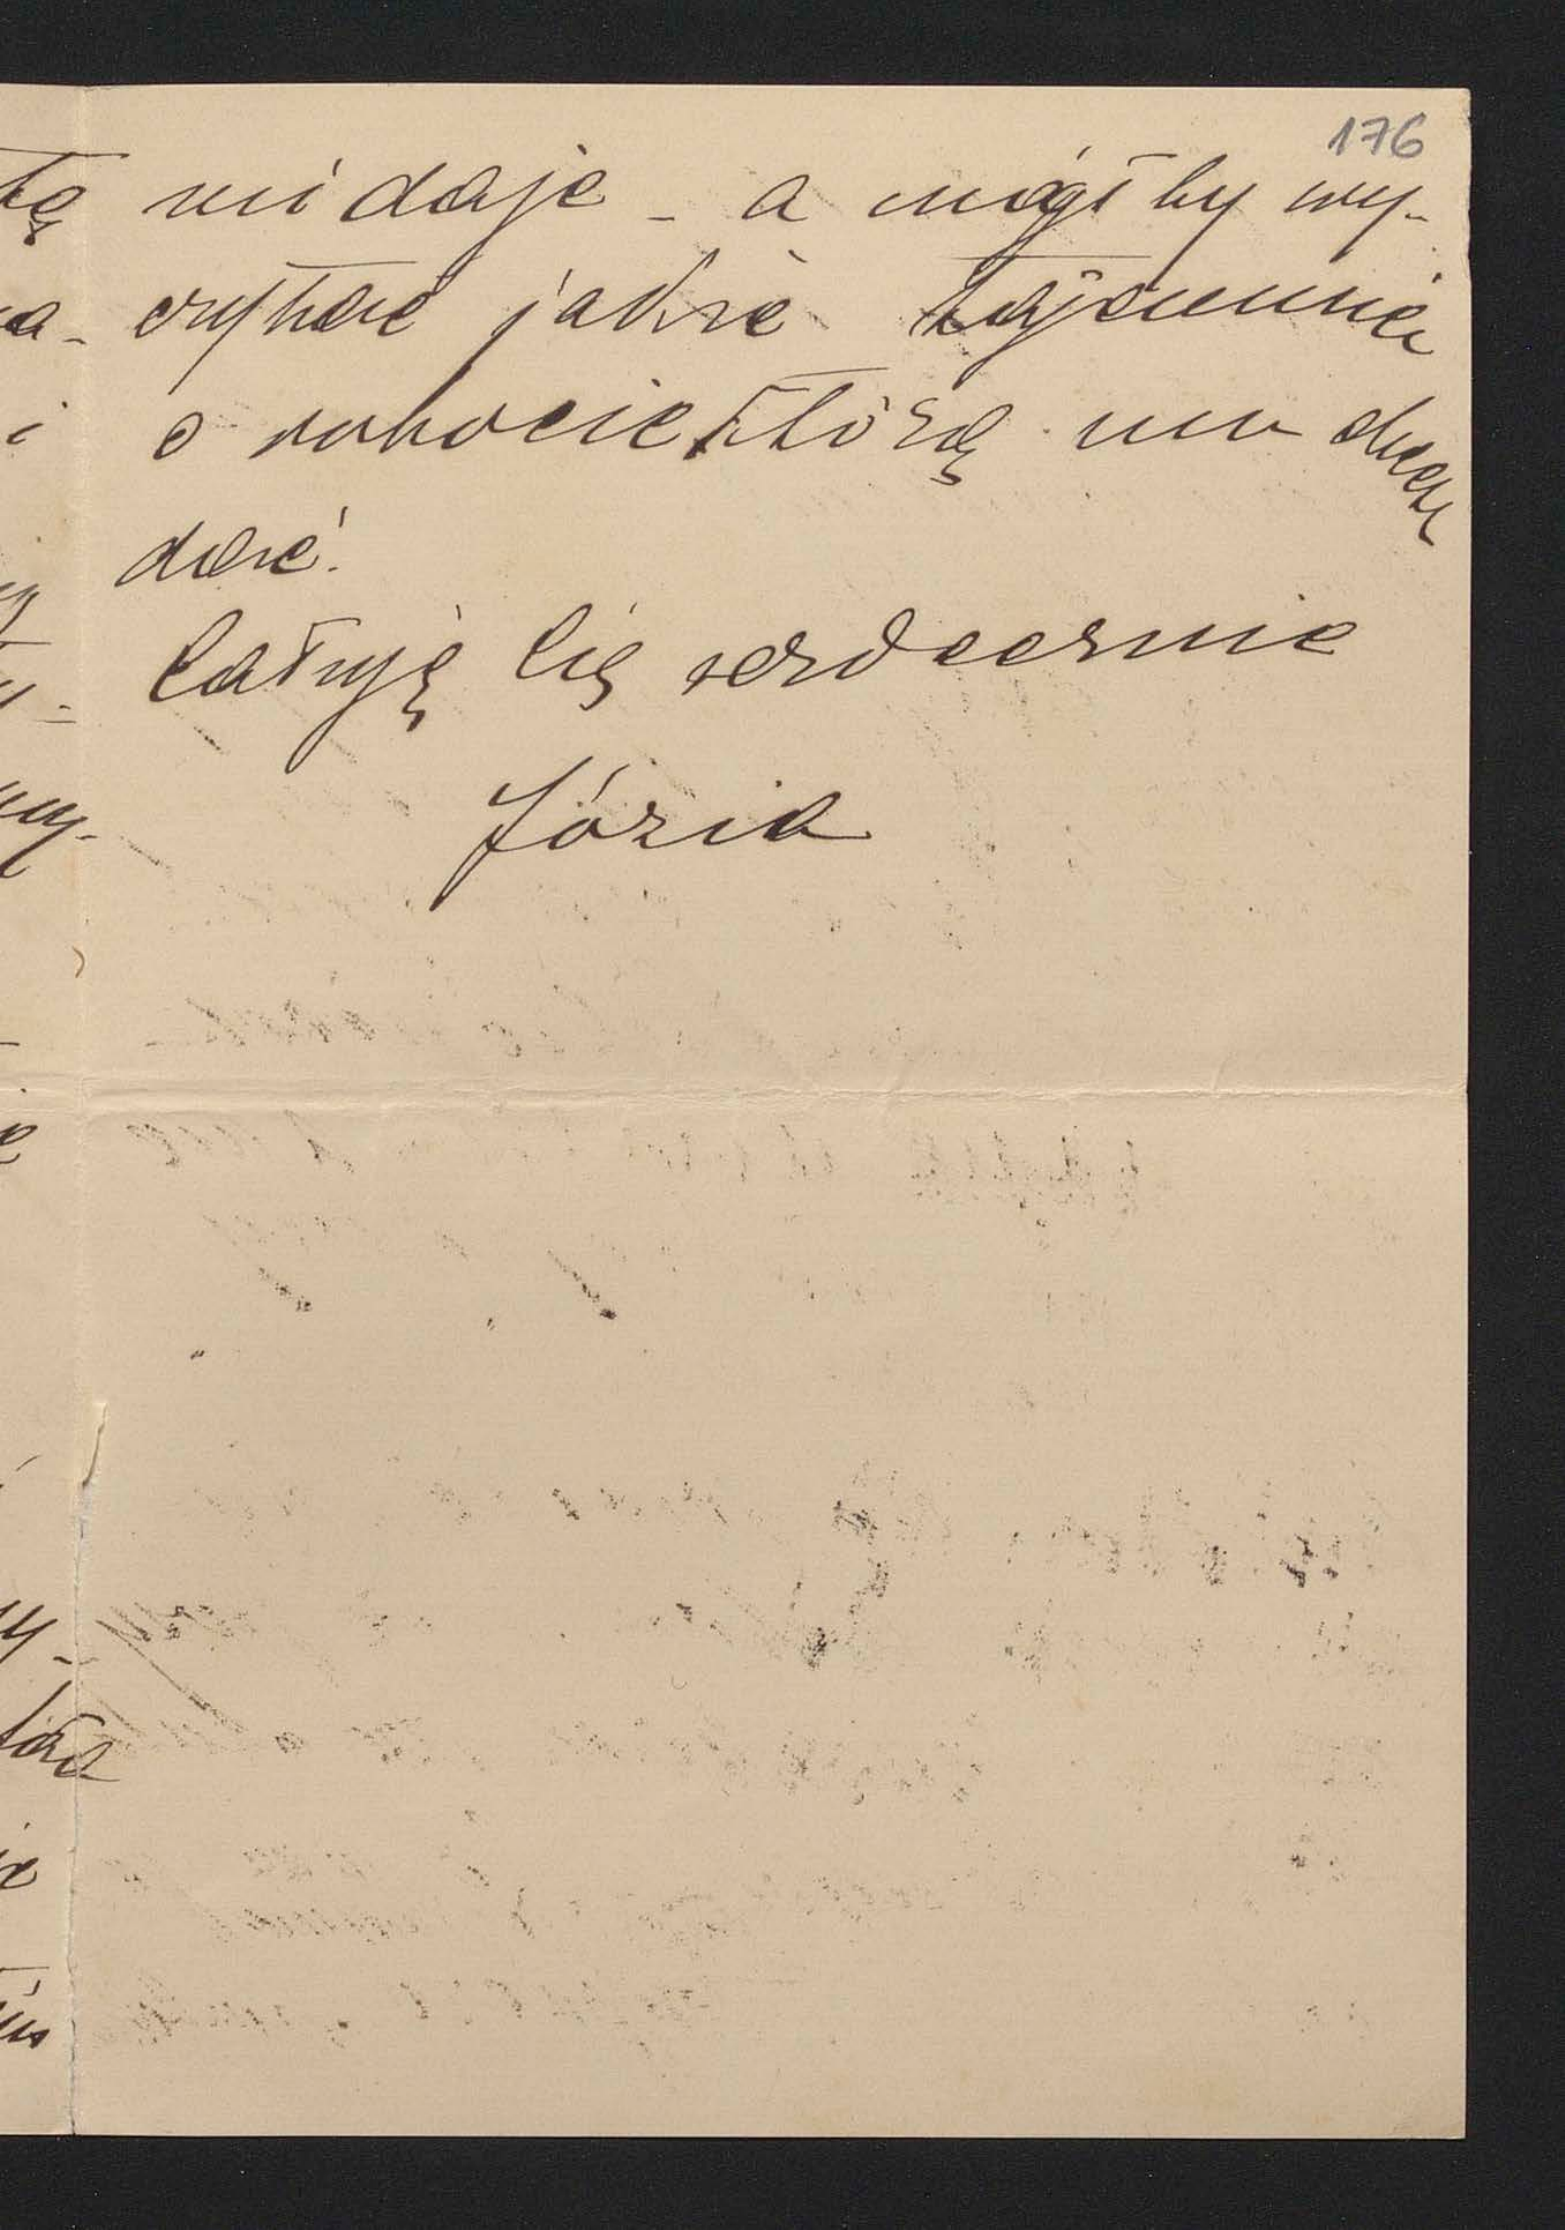 176
mi daje - a mógł by wy-
czytać jakie tajemnice
o robocie, którą mu chcę
dać.
Całuję Cię serdecznie
Józia